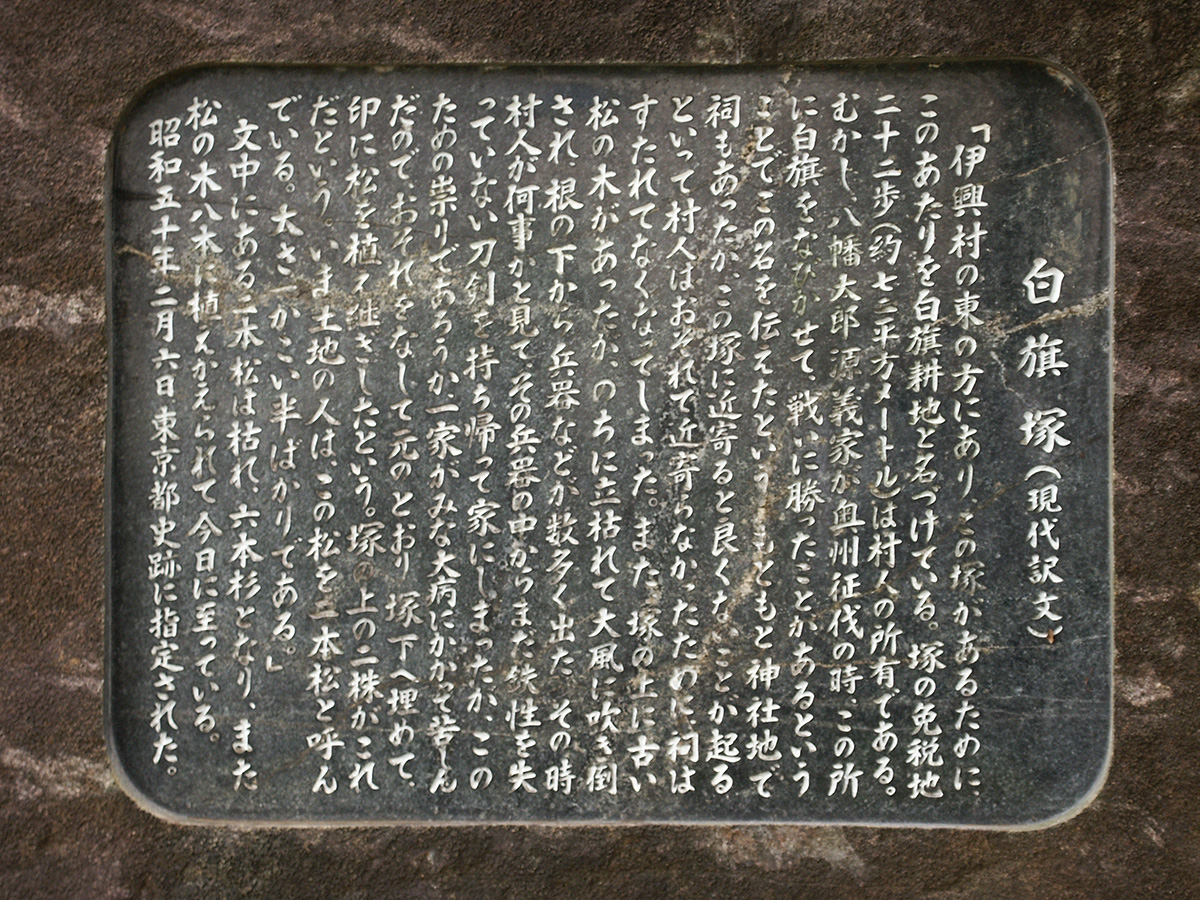 白旗塚(現代訳文)
「伊興村の東の方にあり、この塚があるために、
このあたりを白旗耕地と名づけている。塚の免税地
二十二歩(約七三平方メートル)は村人の所有である。
むかし、八幡大郎源義家が奥州征伐の時、この所
に白旗をなびかせて、戦いに勝ったことがあるという
ことでこの名を伝えたという。もともと神社地で
祠もあったが、この塚に近寄ると良くないことが起る
といって村人はおそれて近寄らなかったために、祠は
すたれてなくなってしまった。また、塚の上に古い
松の木があったが、のちに立枯れて大風に吹き倒
され、根の下から兵器などが数多く出た。その時
村人が何事かと見て、その兵器の中からまだ鉄性を失
っていない刀剣を持ち帰って家にしまったが、この
ための祟りであろうか、一家がみな大病にかかって苦しん
だので、おそれをなして元のとおり塚下へ埋めて、
印に松を植え継ぎしたという。塚の上の二株がこれ
だという。いま土地の人は、この松を二本松と呼ん
でいる。大さ一かこい半ばかりである。」
文中にある二本松は枯れ、六本杉となり、また
松の木八本に植えかえられて今日に至っている。
昭和五十年二月六日東京都史跡に指定された。